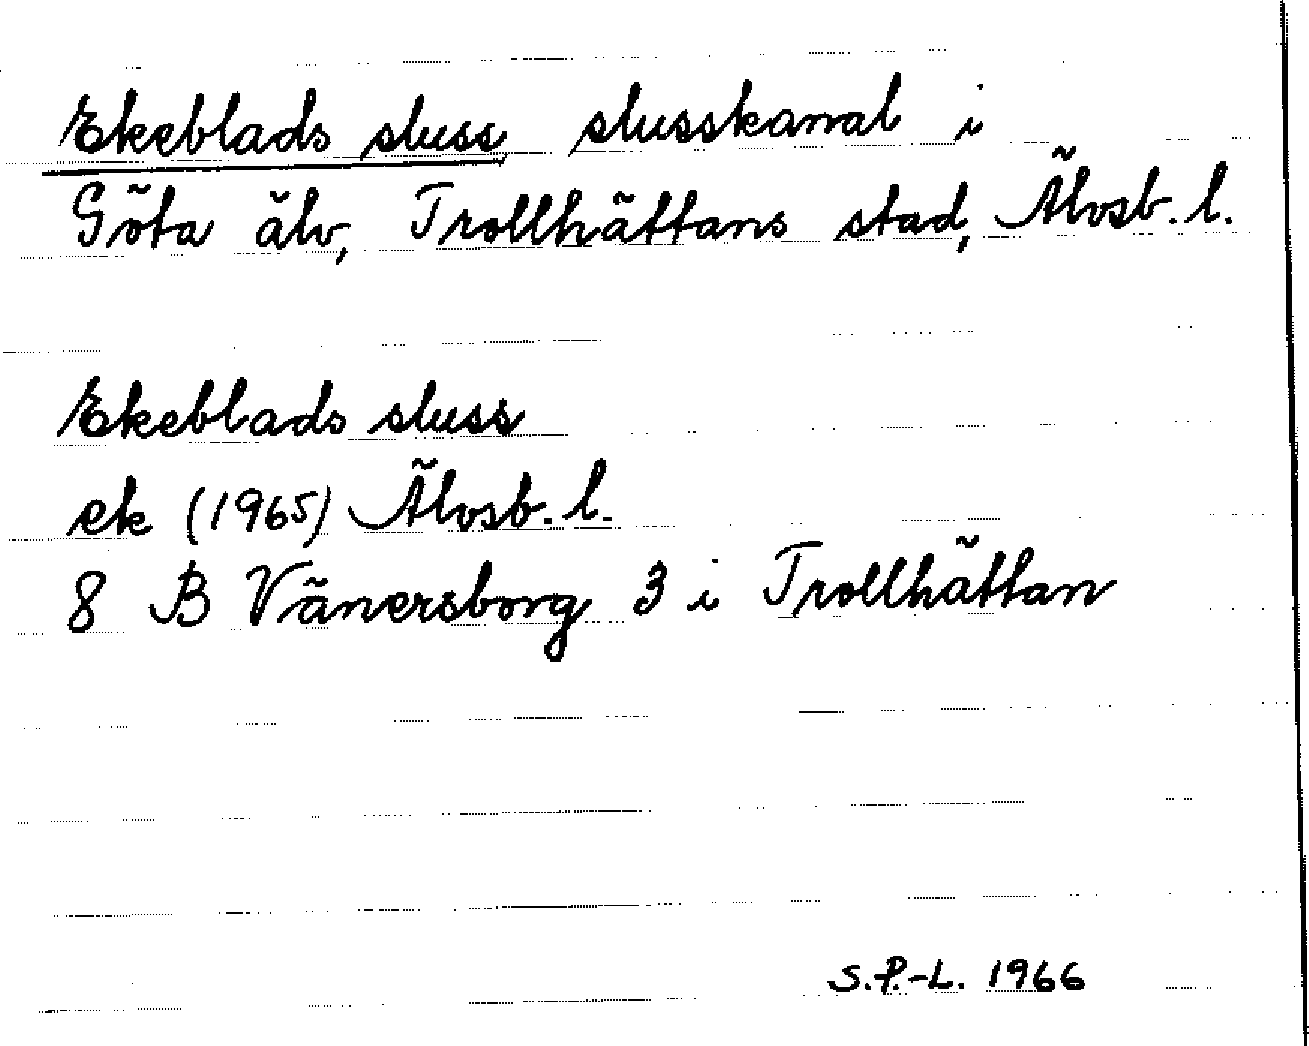 Ekeblads sluss slusskanal i
Göta älv, Trollhättans stad, Älvsb. l.
Ekeblads sluss
ek (1965) Älvsb. l.
8 B Vänersborg 3 i Trollhättan
S.P.-L. 1966